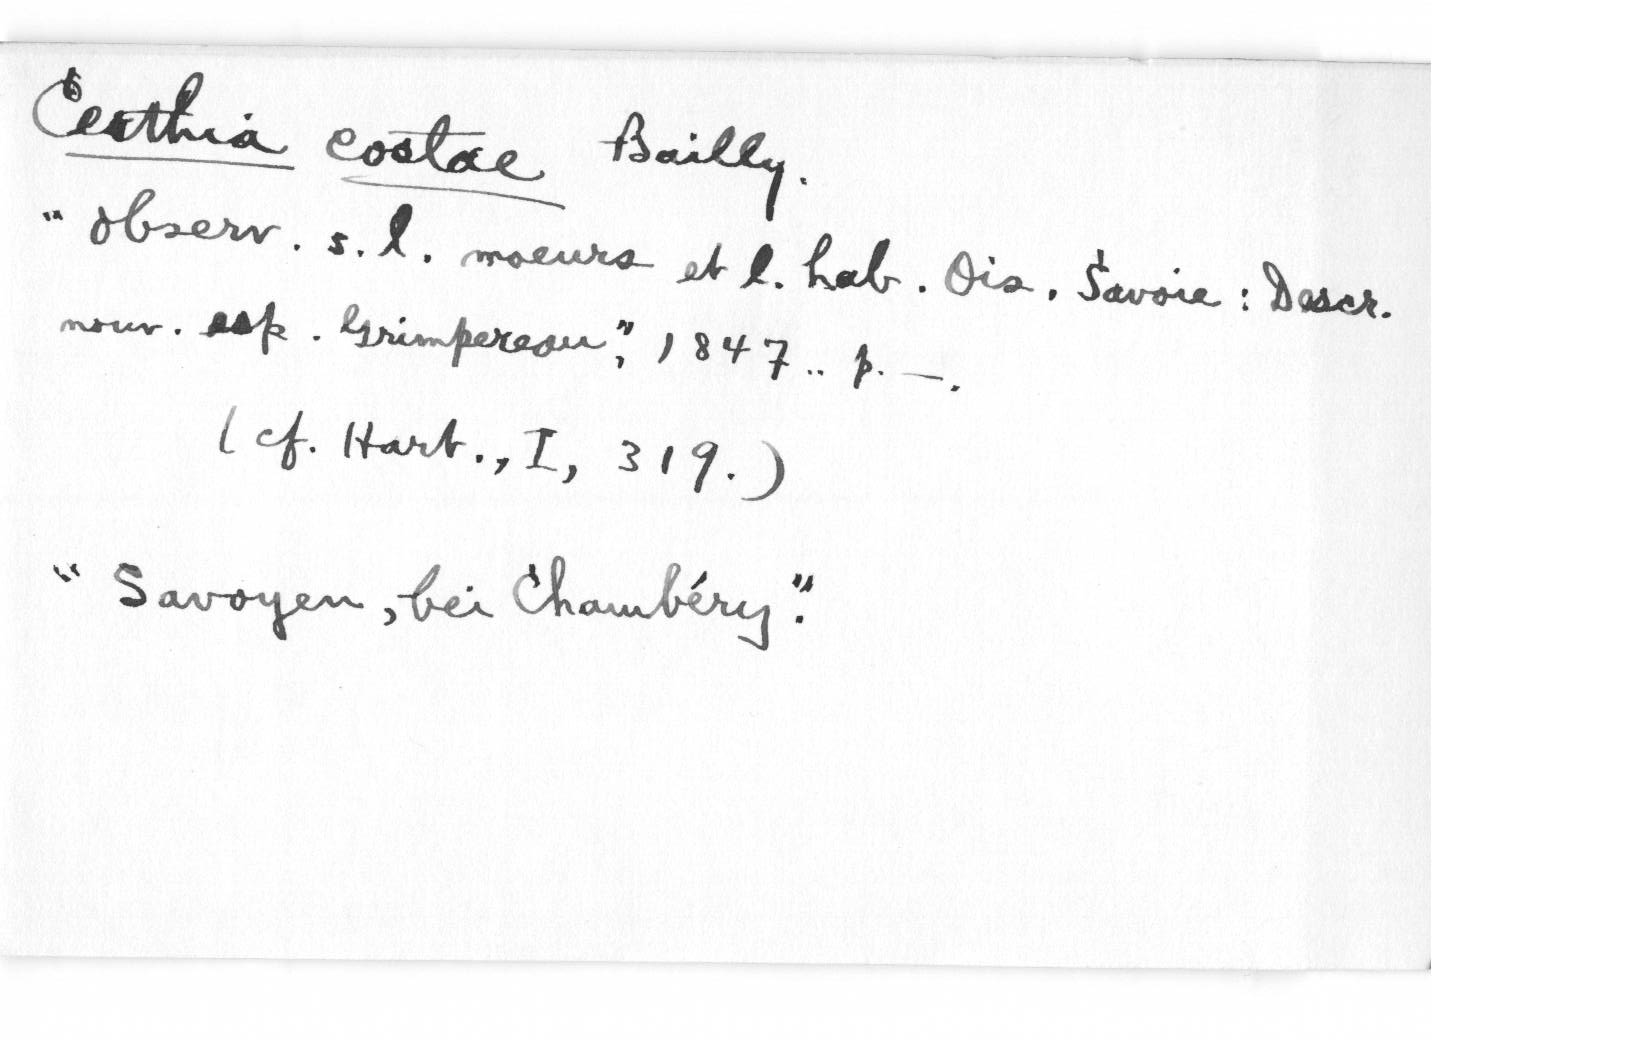 Certhia costae Bailly.
"Observ. s. l. moeurs et l. hab. Ois. Savoie: Descr.
nouv. esp. Grimpereau", 1847.. p. —.
(cf. Hart., I, 319.)
"Savoyen, bei Chambéry".